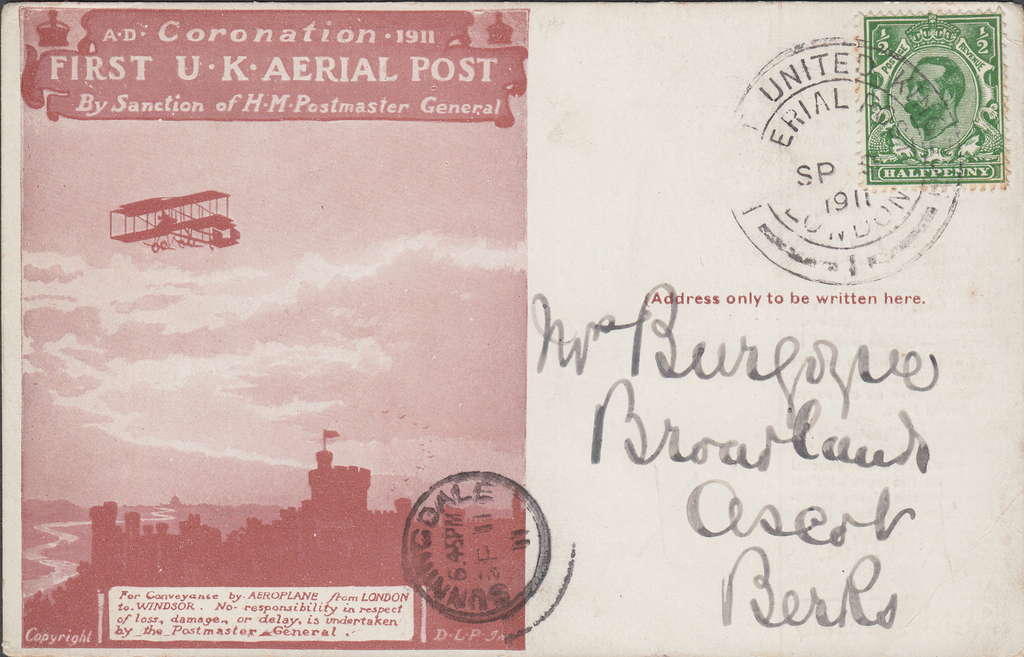 A·D· Coronation · 1911
FIRST U·K· AERIAL POST
By Sanction of H·M·Postmaster General
For Conveyance by AEROPLANE from LONDON
to WINDSOR. No responsibility in respect
of loss, damage, or delay, is undertaken
by the Postmaster General.
Copyright
D·L·P·
SUNNINGDALE
6.45PM
SP 11
11
UNITED
ERIAL
SP
1911
LONDON
1
½ ½
POSTAGE REVENUE
HALFPENNY
Address only to be written here.
Mrs Burgoyne
Broadlands
Ascot
Berks